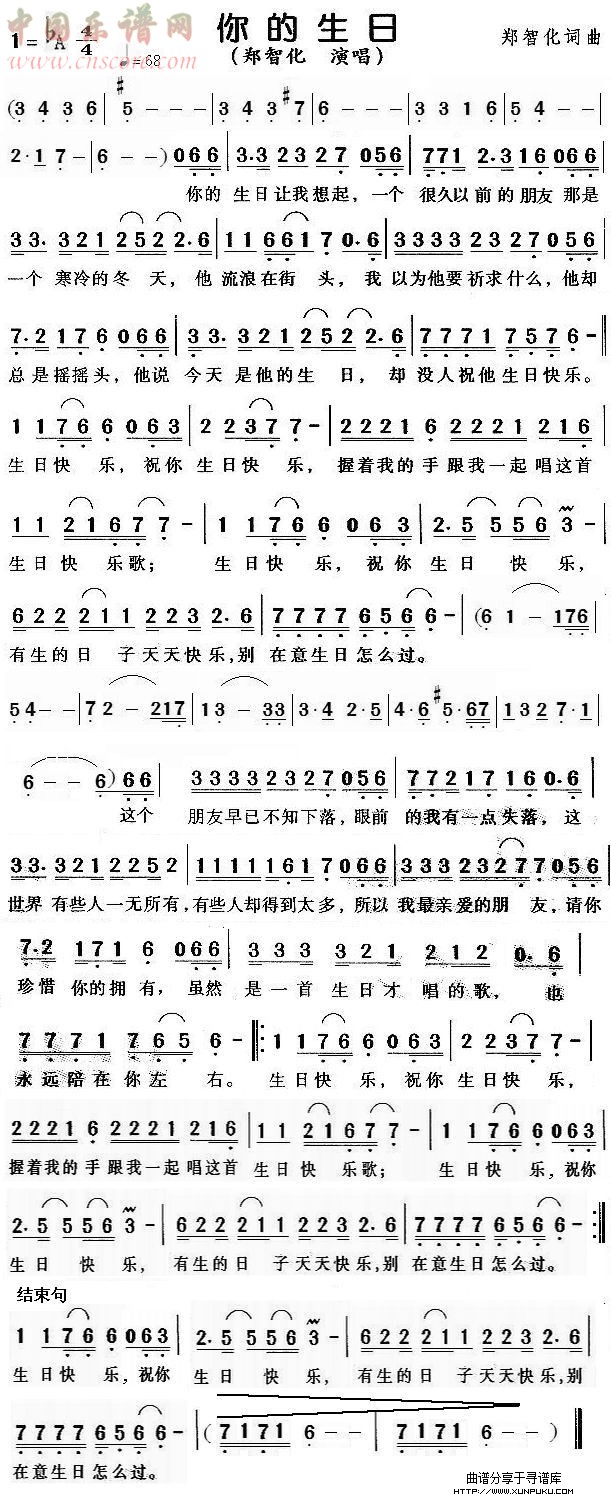 中国乐谱网
www.cnscore.com
1=♭A 4/4 ♩=68
你的生日
(郑智化 演唱)
郑智化词曲
(3 4 3 6 | #5 - - | 3 4 3 #7 | 6 - - | 3 3 1 6 | 5 5 - -
2·1 7 - | 6 - - ) 0 6 6 | 3·3 2 3 2 7 0 5 6 | 7 7 1 2·3 1 6 0 6 6
你的 生日让我想起，一个 很久以前的朋友 那是
3 3· 3 2 1 2 5 2 2·6 | 1 1 6 6 1 7 0·6 | 3 3 3 3 3 2 3 2 7 0 5 6
一个 寒冷的冬 天，他 流浪在街 头，我 以为他要祈求什么，他却
7·2 1 7 6 0 6 6 | 3 3· 3 2 1 2 5 2 2·6 | 7 7 7 1 7 5 7 6 -
总是摇摇头，他说 今天 是他的生 日，却 没人祝他生日快乐。
1 1 7 6 6 0 6 3 | 2 2 3 7 7 - | 2 2 2 1 6 2 2 2 1 2 1 6
生日快 乐，祝你 生日快乐，握着我的手跟我一起唱这首
1 1 2 1 6 7 7 - | 1 1 7 6 6 0 6 3 | 2· 5 5 5 6 3 -
生日快 乐歌； 生日快 乐，祝你 生日 快 乐，
6 2 2 2 1 1 2 2 3 2·6 | 7 7 7 7 6 5 6 6 - | (6 1 - 1 7 6
有生的日 子天天快乐，别 在意生日怎么过。
5 4 - - | 7 2 - 2 1 7 | 1 3 - 3 3 | 3·4 2·5 | 4·6 #5·6 7 | 1 3 2 7·1
6 - - 6 ) 6 6 3 3 3 3 2 3 2 7 0 5 6 | 7 7 2 1 7 1 6 0·6
这个 朋友早已不知下落，眼前 的我有一点失落，这
3 3· 3 2 1 2 2 5 2 | 1 1 1 1 1 6 1 7 0 6 6 | 3 3 3 2 3 2 7 7 0 5 6
世界 有些人一无所有，有些人却得到太多，所以 我最亲爱的朋 友，请你
7·2 1 7 1 6 0 6 6 | 3 3 3 3 2 1 2 1 2 0·6
珍惜 你的拥有，虽然 是一首 生日才 唱的歌，也
7 7 7 1 7 6 5 6 - 1 1 7 6 6 0 6 3 | 2 2 3 7 7 -
永远陪在你左 右。 生日快乐，祝你生日快乐，
2 2 2 1 6 2 2 2 1 2 1 6 | 1 1 2 1 6 7 7 - | 1 1 7 6 6 0 6 3
握着我的手跟我一起唱这首 生日快 乐歌； 生日快 乐，祝你
2· 5 5 5 6 3 - | 6 2 2 2 1 1 2 2 3 2·6 | 7 7 7 7 6 5 6 6 -
生日 快 乐，有生的日 子天天快乐，别 在意生日怎么过。
结束句
1 1 7 6 6 0 6 3 | 2· 5 5 5 6 3 - | 6 2 2 2 1 1 2 2 3 2·6
生日快 乐，祝你 生日 快 乐，有生的日 子天天快乐，别
7 7 7 7 6 5 6 6 - | ( 7 1 7 1 6 - - | 7 1 7 1 6 - - )
在意生日怎么过。
曲谱分享于寻谱库
HTTP://WWW.XUNPUKU.COM